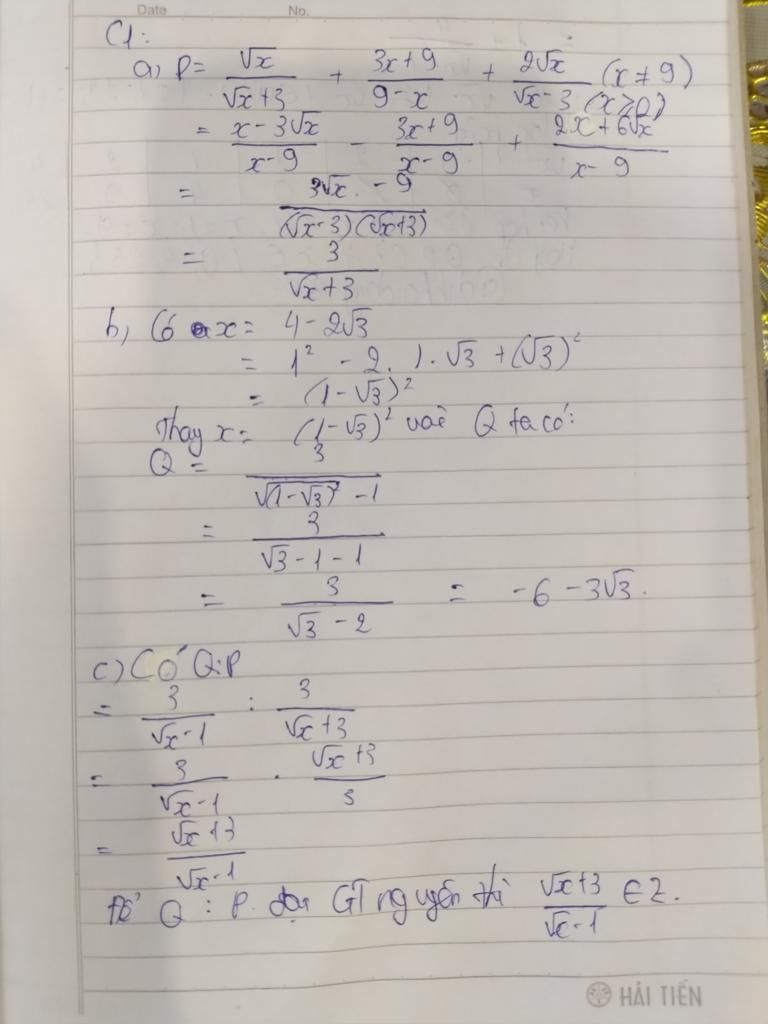 Date No.
C1:
a, P = √x/(√x+3) + (3x+9)/(9-x) + 2√x/(√x-3) (x ≠ 9) (x≥0)
= (x-3√x)/(x-9) - (3x+9)/(x-9) + (2x+6√x)/(x-9)
= (3√x - 9)/((√x-3)(√x+3))
= 3/(√x+3)
b, Có x = 4 - 2√3
= 1² - 2.1.√3 + (√3)²
= (1-√3)²
Thay x = (1-√3)² vaò Q ta có:
Q = 3/(√(1-√3)² - 1)
= 3/(√3-1-1)
= 3/(√3-2) = -6-3√3.
c) Có Q:P
= 3/(√x-1) : 3/(√x+3)
= 3/(√x-1) . (√x+3)/3
= (√x+3)/(√x-1)
Để Q : P. đạt GT nguyên thì (√x+3)/(√x-1) ∈ Z.
HẢI TIẾN